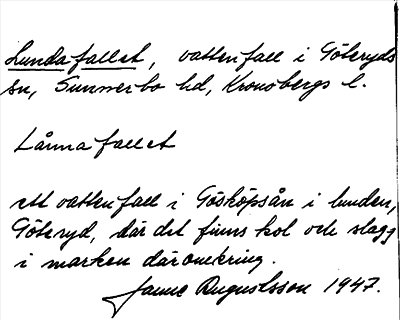 Lundafallet, vattenfall i Göteryds
sn, Sunnerbo hd, Kronobergs l.
Lånnafallet
ett vattenfall i Gösköpsån i lunden,
Göteryd, där det finns kol och slagg
i marken däromkring.
Janne Augustsson 1947.